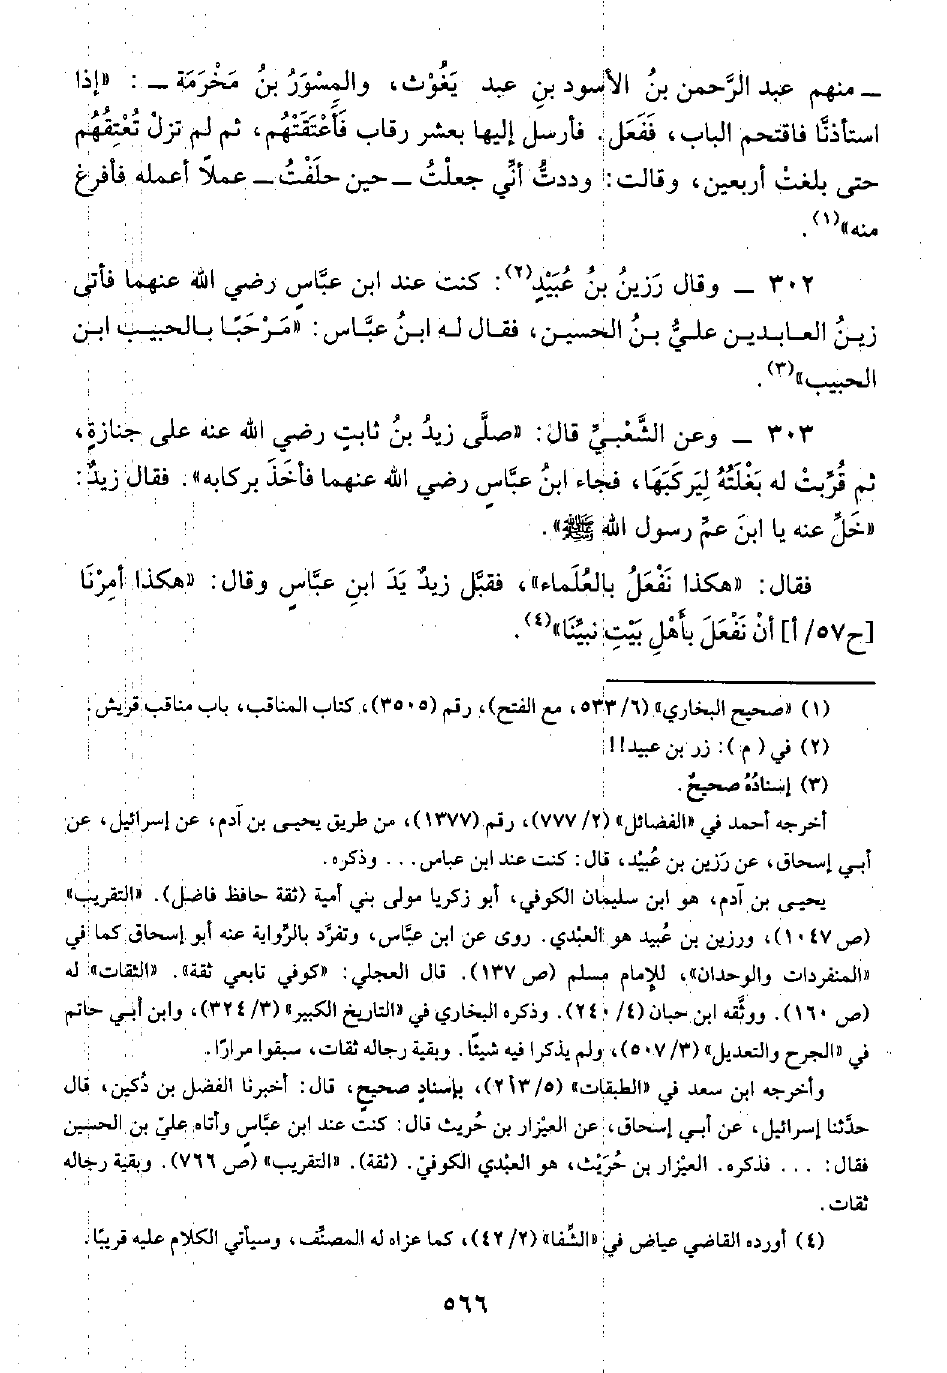 ــ منهم عبد الرَّحمن بنُ الأسود بنِ عبد يَغُوْث، والمِسْوَرُ بنُ مَخْرَمَة ــ : «إذا
استأذنَّا فاقتحم الباب، فَفَعَل. فأرسل إليها بعشر رقاب فَأَعْتَقَتْهُم، ثم لم تزلْ تُعْتِقُهُم
حتى بلغتْ أربعين، وقالت: وددتُّ أنِّي جعلْتُ ــ حين حلَفْتُ ــ عملاً أعمله فأفرغ
منه»(١).
٣٠٢ ــ وقال رَزِينُ بنُ عُبَيْدٍ(٢): كنت عند ابن عبَّاسٍ رضي الله عنهما فأتى
زينُ العـابـديـن عليُّ بـنُ الحسيـن، فقـال لـه ابـنُ عبَّـاس: «مَـرْحَبًـا بـالحبيـب ابـن
الحبيب»(٣).
٣٠٣ ــ وعن الشَّعْبـيِّ قال: «صلَّى زيدُ بنُ ثابتٍ رضي الله عنه على جنازةٍ،
ثم قُرِّبتْ له بَغْلَتُهُ لِيَركَبَهَا، فجاء ابنُ عبَّاسٍ رضي الله عنهما فأخَذَ بركابه». فقال زيدٌ:
«خَلِّ عنه يا ابنَ عمِّ رسول الله ﷺ».
فقال: «هكذا نَفْعَلُ بالعُلَماء»، فقبَّل زيدٌ يَدَ ابنِ عبَّاسٍ وقال: «هكذا أُمِرْنَا
[ح٥٧/ أ] أنْ نَفْعَلَ بأَهْلِ بَيْتِ نبيِّنَا»(٤).
(١) «صحيح البخاري» (٦/ ٥٣٣، مع الفتح)، رقم (٣٥٠٥)، كتاب المناقب، باب مناقب قريش.
(٢) في (م): زر بن عبيد!!
(٣) إسنادُهُ صحيحٌ.
أخرجه أحمد في «الفضائل» (٢/ ٧٧٧)، رقم (١٣٧٧)، من طريق يحيـى بن آدم، عن إسرائيل، عن
أبـي إسحاق، عن رَزين بن عُبيْد، قال: كنت عند ابن عباس... وذكره.
يحيـى بن آدم، هو ابن سليمان الكوفي، أبو زكريا مولى بني أمية (ثقة حافظ فاضل). «التقريب»
(ص ١٠٤٧)، ورزين بن عُبيد هو العبْدي. روى عن ابن عبَّاس، وتفرَّد بالرِّواية عنه أبو إسحاق كما في
«المنفردات والوحدان»، للإمام مسلم (ص ١٣٧). قال العجلي: «كوفي تابعي ثقة». «الثقات» له
(ص ١٦٠). ووثَّقه ابن حبان (٤/ ٢٤٠). وذكره البخاري في «التاريخ الكبير» (٣/ ٣٢٤)، وابن أبـي حاتم
في «الجرح والتعديل» (٣/ ٥٠٧)، ولم يذكرا فيه شيئًا. وبقية رجاله ثقات، سبقوا مرارًا.
وأخرجه ابن سعد في «الطبقات» (٥/ ٢١٣)، بإسنادٍ صحيحٍ، قال: أخبرنا الفضل بن دُكين، قال
حدَّثنا إسرائيل، عن أبـي إسحاق، عن العيْزار بن حُريث قال: كنت عند ابن عبَّاسٍ وأتاه عليّ بن الحسين
فقال: ... فذكره. العيْزار بن حُرَيْث، هو العبْدي الكوفيّ. (ثقة). «التقريب» (ص ٧٦٦). وبقية رجاله
ثقات.
(٤) أورده القاضي عياض في «الشِّفا» (٢/ ٤٢)، كما عزاه له المصنِّف، وسيأتي الكلام عليه قريبًا.
٥٦٦